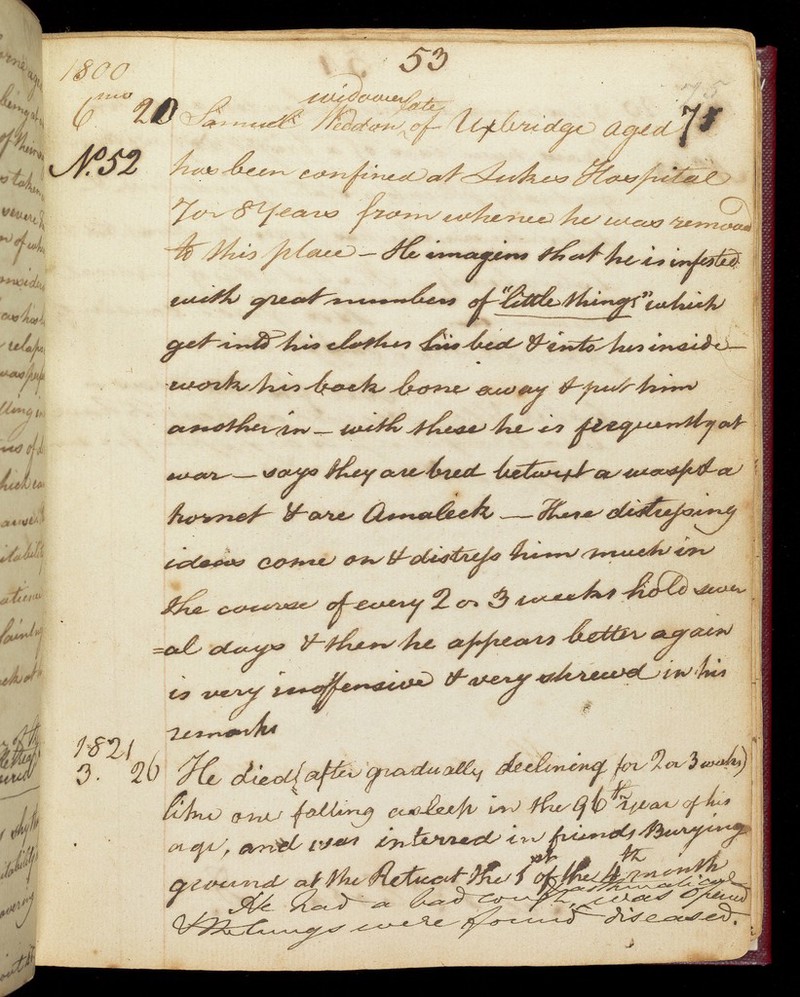 53
1800
6 mo 20 Samuel Weedon widower late of Uxbridge aged 75
No. 52 has been confined at Lukes Hospital
7 or 8 Years from whence he was removed
to this place – He imagins that he is infested
with great numbers of "little things" which
get into his clothes his bed & into his inside –
work his back bone away & put him
another in – with these he is frequently at
war – says they are bred betwixt a wasp & a
hornet & are Amaleck – These distressing
ideas come on & distress him much in
the course of every 2 or 3 weeks hold sever
=al days & then he appears better again
is very inoffensive & very shrewd in his
remarks
1821
3. 26 He died (after gradually declining for 2 or 3 weeks)
like one falling asleep in the 96th year of his
age, and was interred in friends Burying
ground at the Retreat the 1st of the 4th month
He had a bad cough, asthmatical was opened
& the lungs were found diseased.